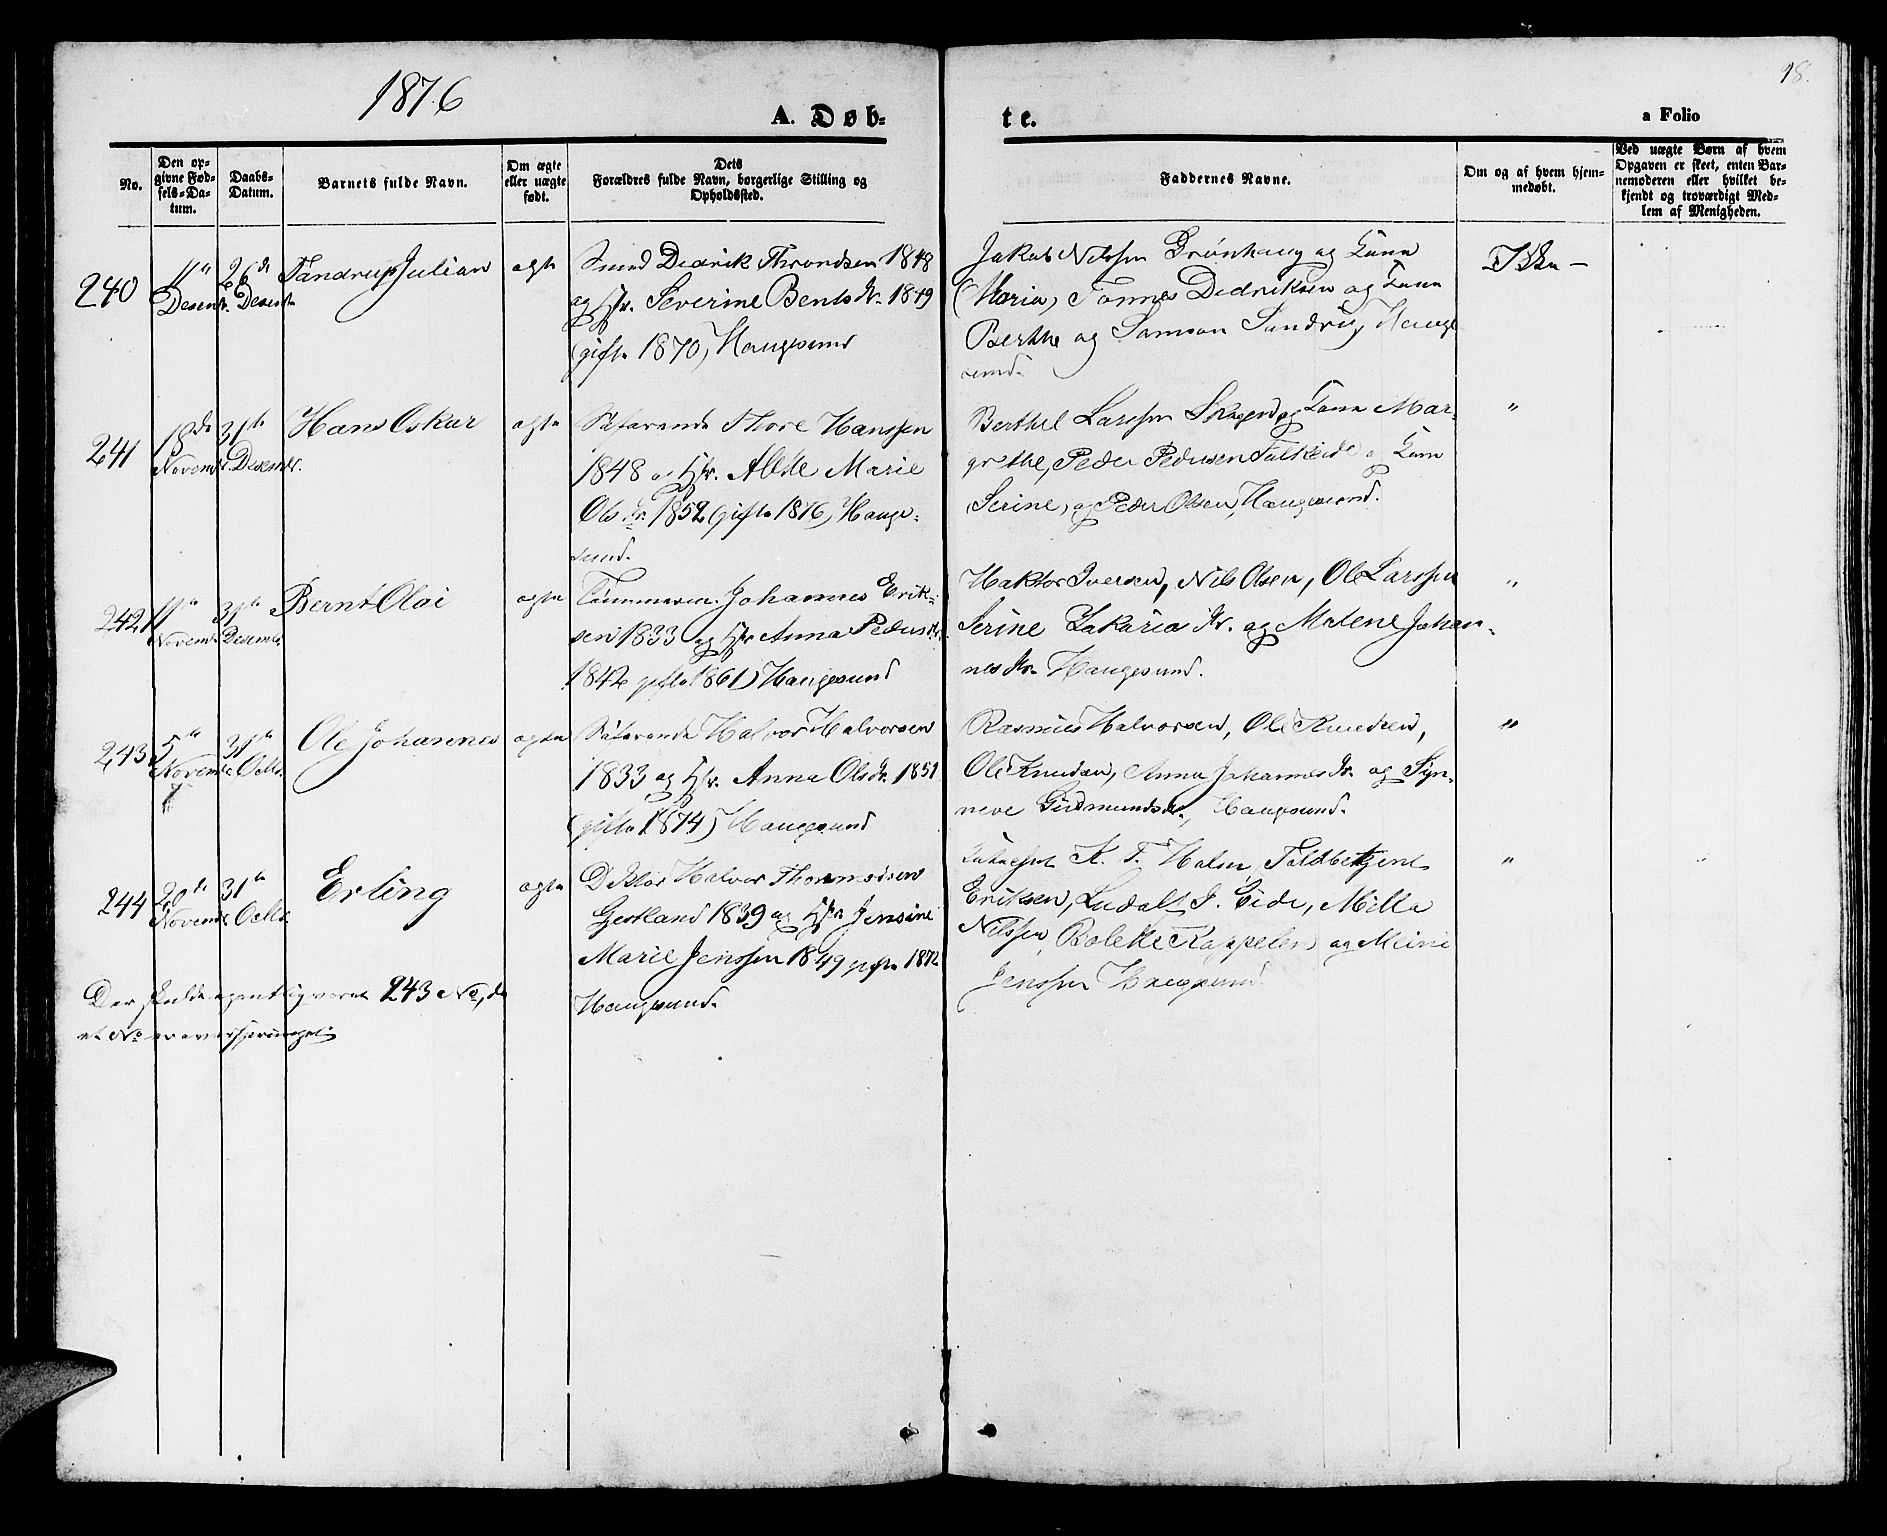 1876
A. Døb-
te.
a Folio
98.
No.
Den op-
givne Fød-
sels-Da-
tum.
Daabs-
Datum.
Barnets fulde Navn.
Om ægte
eller uægte
født.
Dets
Forældres fulde Navn, borgerlige Stilling og
Opholdssted.
Faddernes Navne.
Om og af hvem hjem-
medøbt.
Ved uægte Børn af hvem
Opgaven er skeet, enten Bar-
nemoderen eller hvilket be-
kjendt og troværdigt Med-
lem af Menigheden.
240
11te
Desembr.
26de
Desembr.
Tandrup Julian
ægte
Smed Dedrik Throndsen 1848
og Hstr. Severine Bentsdtr. 1849
(gifte 1870) Haugesund
Jakob Nilssen Grønhaug og Kone
Maria, Tønnes Dedriksen og Kone
Berthe og Samson Sandvig Hauge
sund.
Ikke –
241
18de
Novembr.
31te
Desembr.
Hans Oskar
ægte
Søfarende Thore Hanssen
1848 og Hstr. Marie
Olsdtr. 1852 (gifte 1876) Hauge-
sund.
Berthel Larssen og Kone Mar-
grethe, Peder Pedersen og Kone
Serine, og Peder Olsen, Haugesund.
"
242
11te
Novembr.
31te
Desembr.
Bernt Olai
ægte
Tømmerm. Johannes Erik-
sen 1833 og Hstr Anna Pedersdtr.
1842 gifte 1861) Haugesund
Iversen, Nils Olsen, Ole Larssen
Serine Zakariasdtr. og Malene Johan-
nesdtr. Haugesund.
"
243
5te
Novembr.
31te
Octbr.
Ole Johannes
ægte
Søfarende Halvor Halvorsen
1833 og Hstr. Anna Olsdtr. 1851
(gifte 1874) Haugesund
Rasmus Halvorsen, Ole Knudsen,
Ole Knudsen, Anna Johannesdtr. og Syn-
neve Gudmundsdtr., Haugesund.
"
244
20de
Novembr.
31te
Octbr.
Erling
ægte
Doktor Halvor Thormodsen
1839 og Hstr Jensine
Marie Jenssen 1849 gifte 1872
Haugesund.
K. T. Holm, Toldbetjent
Eriksen, J. Eide, Milla
Nilssen, Bolette Kappelen og Mine
Jenssen Haugesund
"
Der skulde egentlig været 243 No, da
et No er oversprunget.